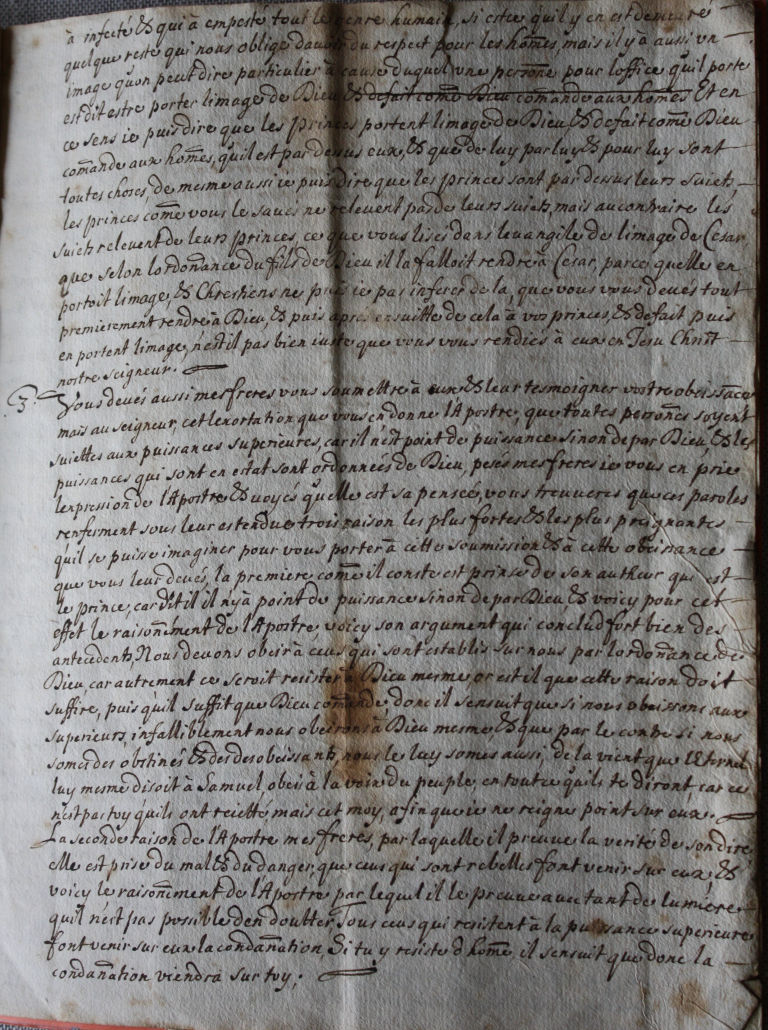 à infecté & qui à empesté tout le genre humain, si estce quil y en est demeuré
quelque reste qui nous oblige davoir du respect pour les hom̃es, mais il y à aussi vn
image quon peut dire particulier à cause duquel vne persõne pour loffice quil porte
est dit estre porter limage de Dieu & defait com̃e Dieu com̃ande aux hom̃es Et en
ce sens ie puis dire que les princes portent limage de Dieu, & defait com̃e Dieu
com̃ande aux hom̃es, quil est par dessus eux, & que de luy par luy & pour luy sont
toutes choses, de mesme aussi ie puis dire que les princes sont par dessus leurs suiets,
les princes com̃e vous le saués ne relevent pas de leurs suiets, mais au contraire les
suiets relevent de leurs princes, ce que vous lisés dans leuangile de limage de Cesar
que selon lordon̄ance du fils de Dieu il la falloit rendre à Cesar, parce quelle en
portoit limage, & Chrestiens ne puis ie pas inferer de la, que vous vous deués tout
premierement rendre à Dieu, & puis apres ensuitte de cela à vos princes, & defait puis
en portent limage, nest il pas bien iuste que vous vous rendiés à eux en Jesu Christ
nostre seigneur.
3. Vous deués aussi mes freres vous soumettre à eux & leur tesmoigner vostre obeissãce
mais au seigneur, cet lexortation que vous en donne l'Apostre, que toutes persõnes soyent
suiettes aux puissances superieures, car il n'est point de puissance sinon de par Dieu, & les
puissances qui sont en estat sont ordonnées de Dieu, pesés mes freres ie vous en prie
lexpression de l'Apostre & voyés qu'elle est sa pensée, vous trouueres que ces paroles
renferment sous leur estendue trois raison les plus fortes & les plus preignantes
quil se puisse imaginer pour vous porter à cette soumission & à cette obeissance
que vous leur deués, la premiere com̃e il conste est prinse de son autheur qui est
le prince, car dit il il n'y à point de puissance sinon de par Dieu & voicy pour cet
effet le raison̄ement de l'Apostre, voicy son argument qui conclud fort bien des
antecedents, Nous deuons obeir à ceus qui sont establis sur nous par lordon̄ance de
Dieu, car autrement ce seroit resister à Dieu mesme or est il que cette raison doit
suffire, puis quil suffit que Dieu com̃ande, donc il sensuit que si nous obeissons aux
superieurs, infalliblement nous obeirons à Dieu mesme & que par le contre si nous
som̃es des obstinés & des desobeissants, nous le luy som̃es aussi, de la vient que l'Eternel
luy mesme disoit à Samuel, obei à la voix du peuple, en tout ce quils te diront, car ce
n'est pas toy quils ont reietté mais cet moy, afin que ie ne reigne point sur eux.
La seconde raison de l'Apostre mes freres, par laquelle il preuue la verité de son dire
elle est prise du mal & du danger, que ceus qui sont rebelles font venir sur eux, &
voicy le raison̄ement de l'Apostre par lequel il le preuue auec tant de lumiere
quil n'est pas possible den doutter, Tous ceus qui resistent à la puissance superieure
font venir sur eux la condan̄ation, Si tu y resiste ô hom̃e, il sensuit que donc la
condan̄ation viendra sur toy;